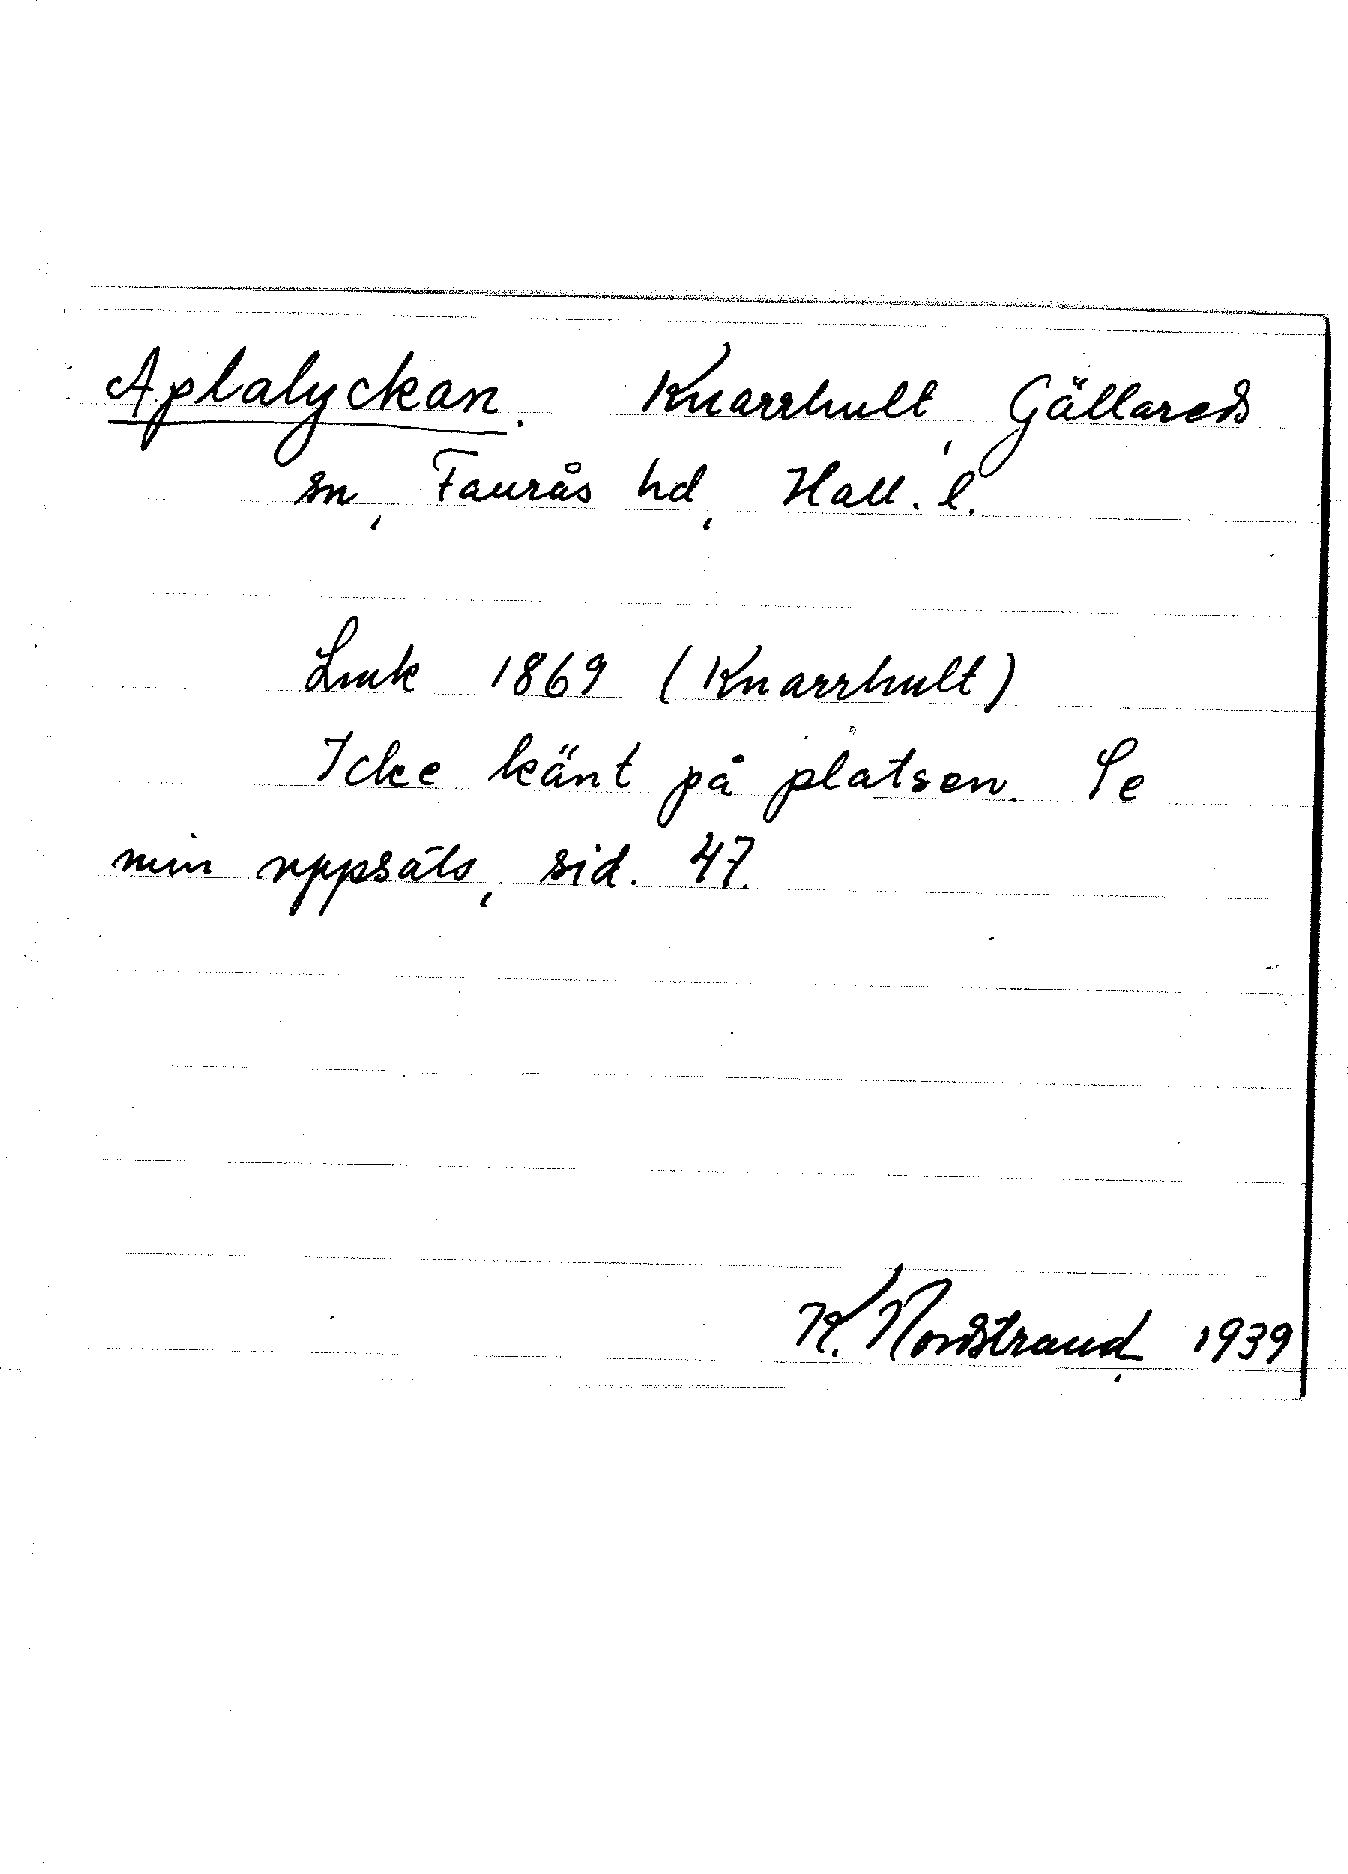 Aplalyckan. Knarrhult, Gällareds
sn, Faurås hd, Hall. l.
Lmk 1869 (Knarrhult)
Icke känt på platsen. Se
min uppsats, sid. 47.
K. Nordstrand, 1939